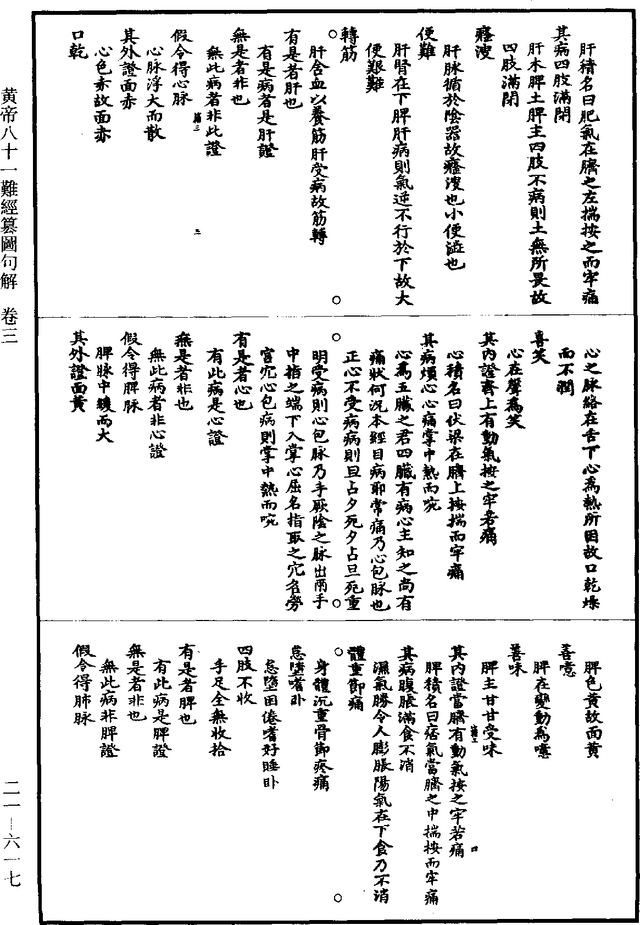 肝積名曰肥氣在臍之左揣按之而牢痛
其病四肢滿閉
肝木脾土脾主四肢不病則土無所畏故
四肢滿閉
癃溲
肝脉循於陰器故癃溲也小便澁也
便難
肝腎在下脾肝病則氣逆不行於下故大
便艱難
轉筋
肝含血以養筋肝受病故筋轉
有是者肝也
有是病者是肝證
無是者非也
無此病者非此證
假令得心脉
心脉浮大而散
其外證面赤
心色赤故面赤
口乾
心之脉絡在舌下心為熱所困故口乾燥
而不潤
喜笑
心在聲為笑
其內證齊上有動氣按之牢若痛
心積名曰伏梁在臍上按揣而牢痛
其病煩心心痛掌中熱而㖞
心為五臟之君四臟有病心主知之尚有
痛狀何況本經自病耶常痛乃心包脉也
正心不受病病則旦占夕死夕占旦死重
明受病則心包脉乃手厥陰之脉出兩手
中指之端下入掌心屈名指取之穴名勞
宮穴心包病則掌中熱而㖞
有是者心也
有此病是心證
無是者非也
無此病者非心證
假令得脾脉
脾脉中緩而大
其外證面黄
脾色黄故面黄
喜噫
脾在變動為噫
善味
脾主甘甘受味
其內證當臍有動氣按之牢若痛
脾積名曰痞氣當臍之中揣按而牢痛
其病腹脹滿食不消
濕氣勝令人膨脹陽氣在下食乃不消
體重節痛
身體沉重骨節疼痛
怠墮嗜卧
怠墮困倦嗜好睡卧
四肢不收
手足全無收拾
有是者脾也
有此病是脾證
無是者非也
無此病非脾證
假令得肺脉
黄帝八十一難經纂圖句解 卷三
二一—六一七